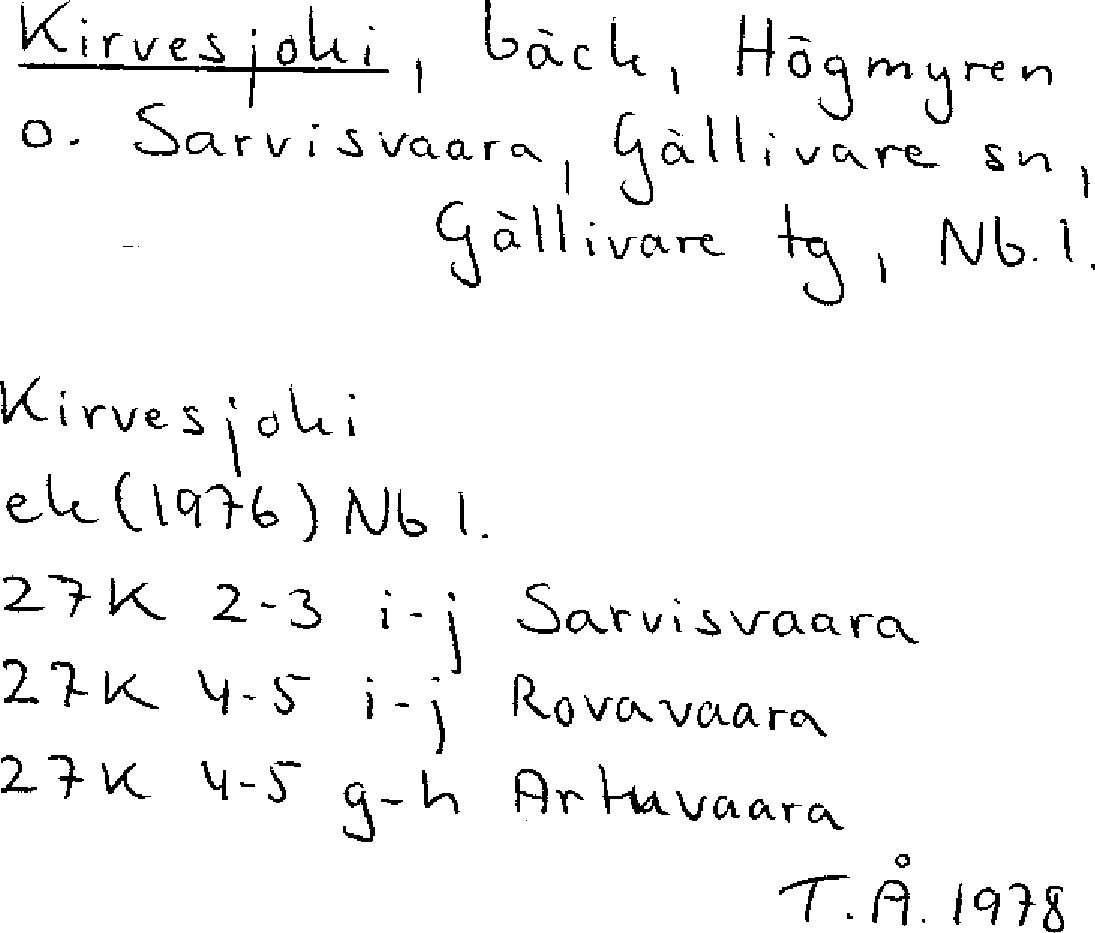 Kirvesjoki, bäck, Högmyren
o. Sarvisvaara, Gällivare sn,
Gällivare tg, Nb. l.
Kirvesjoki
ek (1976) Nb l.
27K 2-3 i-j Sarvisvaara
27K 4-5 i-j Rovavaara
27K 4-5 g-h Arttuvaara
T.Å. 1978